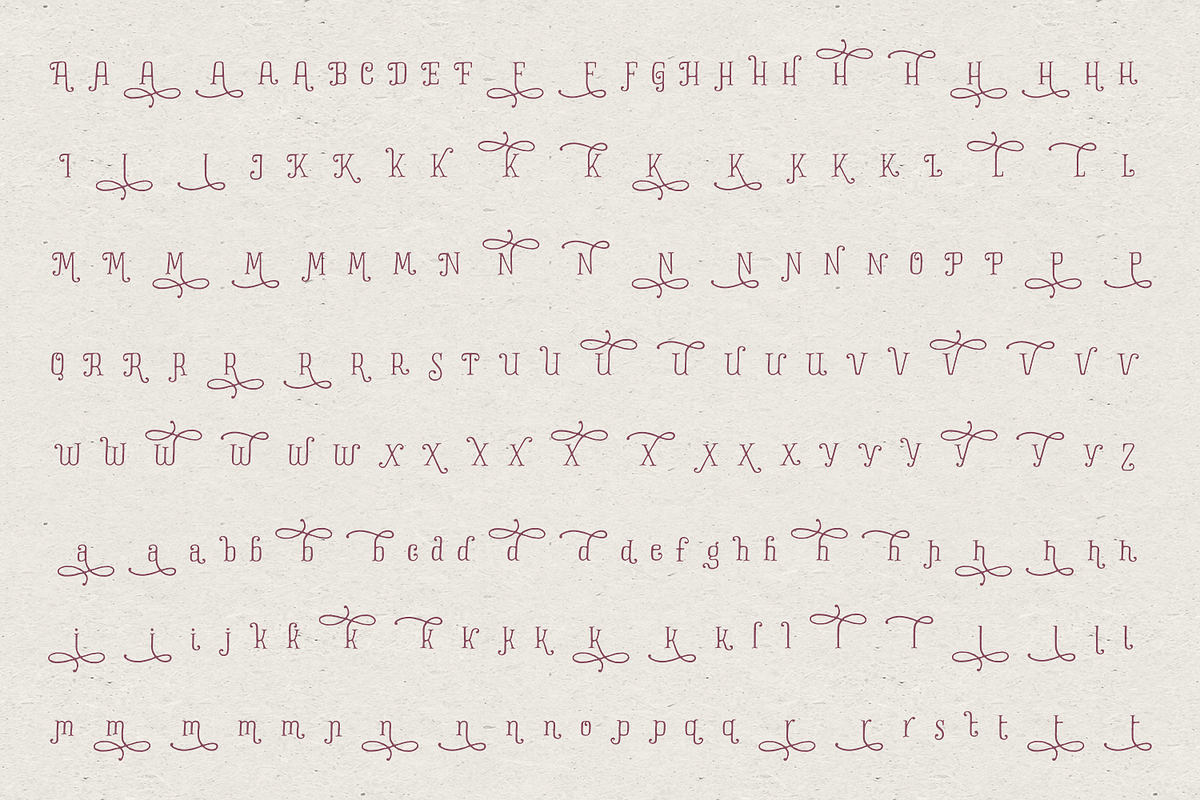 A A A A A A B C D E F F F F G H H H H H H H H H H
I I I J K K K K K K K K K K K L L L L
M M M M M M M N N N N N N N N O P P P P
Q R R R R R R R S T U U U U U U U V V V V V V
W W W W W W X X X X X X X X X Y Y Y Y Y Y Z
a a a b b b b c d d d d d e f g h h h h h h h h h
i i i j k k k k k k k k k k l l l l l l l l
m m m m m n n n n n o p p q q r r r s t t t t